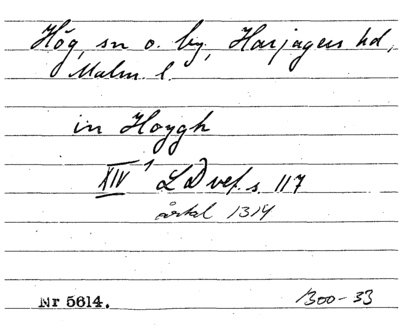 Hög, sn o. by, Harjagers hd,
Malm. l.
in Hoygh
XIV 1 LD vef. s. 117
årtal 1314
Nr 5614.
1300-33